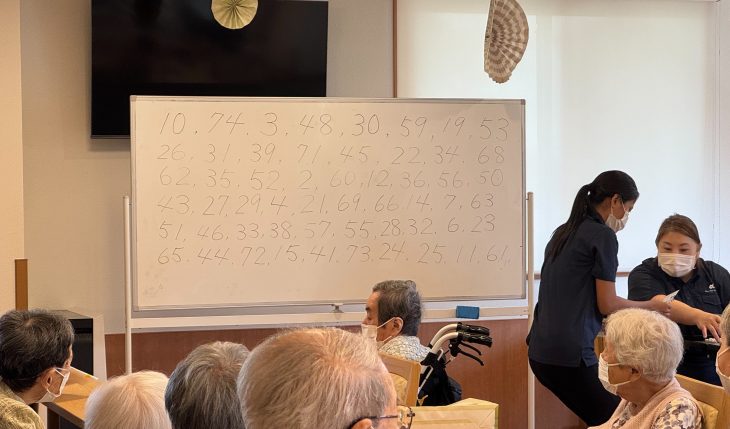 10, 74, 3, 48, 30, 59, 19, 53
26, 31, 39, 71, 45, 22, 34, 68
62, 35, 52, 2, 60, 12, 36, 56, 50
43, 27, 29, 4, 21, 69, 66, 14, 7, 63
51, 46, 33, 38, 57, 55, 28, 32, 6, 23
65, 44, 72, 15, 41, 73, 24, 25, 11, 61